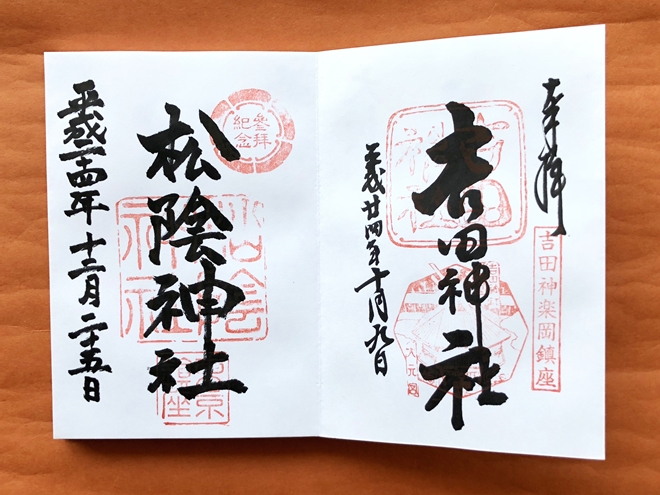 奉拝
吉田神楽岡鎮座
吉田神社
平成廿四年十月九日
大元宮
参拝
紀念
松陰神社
松陰
神社
東京
鎮座
平成二十四年十二月二十五日